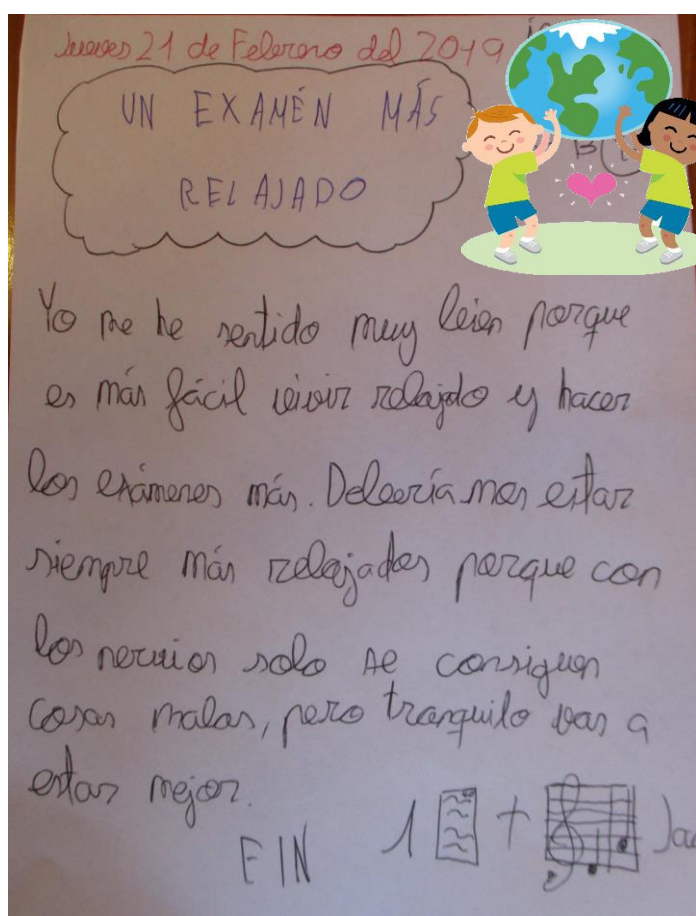 Jueves 21 de Febrero del 2019
UN EXAMÉN MÁS
RELAJADO
Yo me he sentido muy bien porque
es más fácil vivir relajdo y hacer
los exámenes más. Debería mos estar
siempre más relajados porque con
los nervios solo se consiguen
cosas malas, pero tranquilo vas a
estar mejor.
FIN 1 +